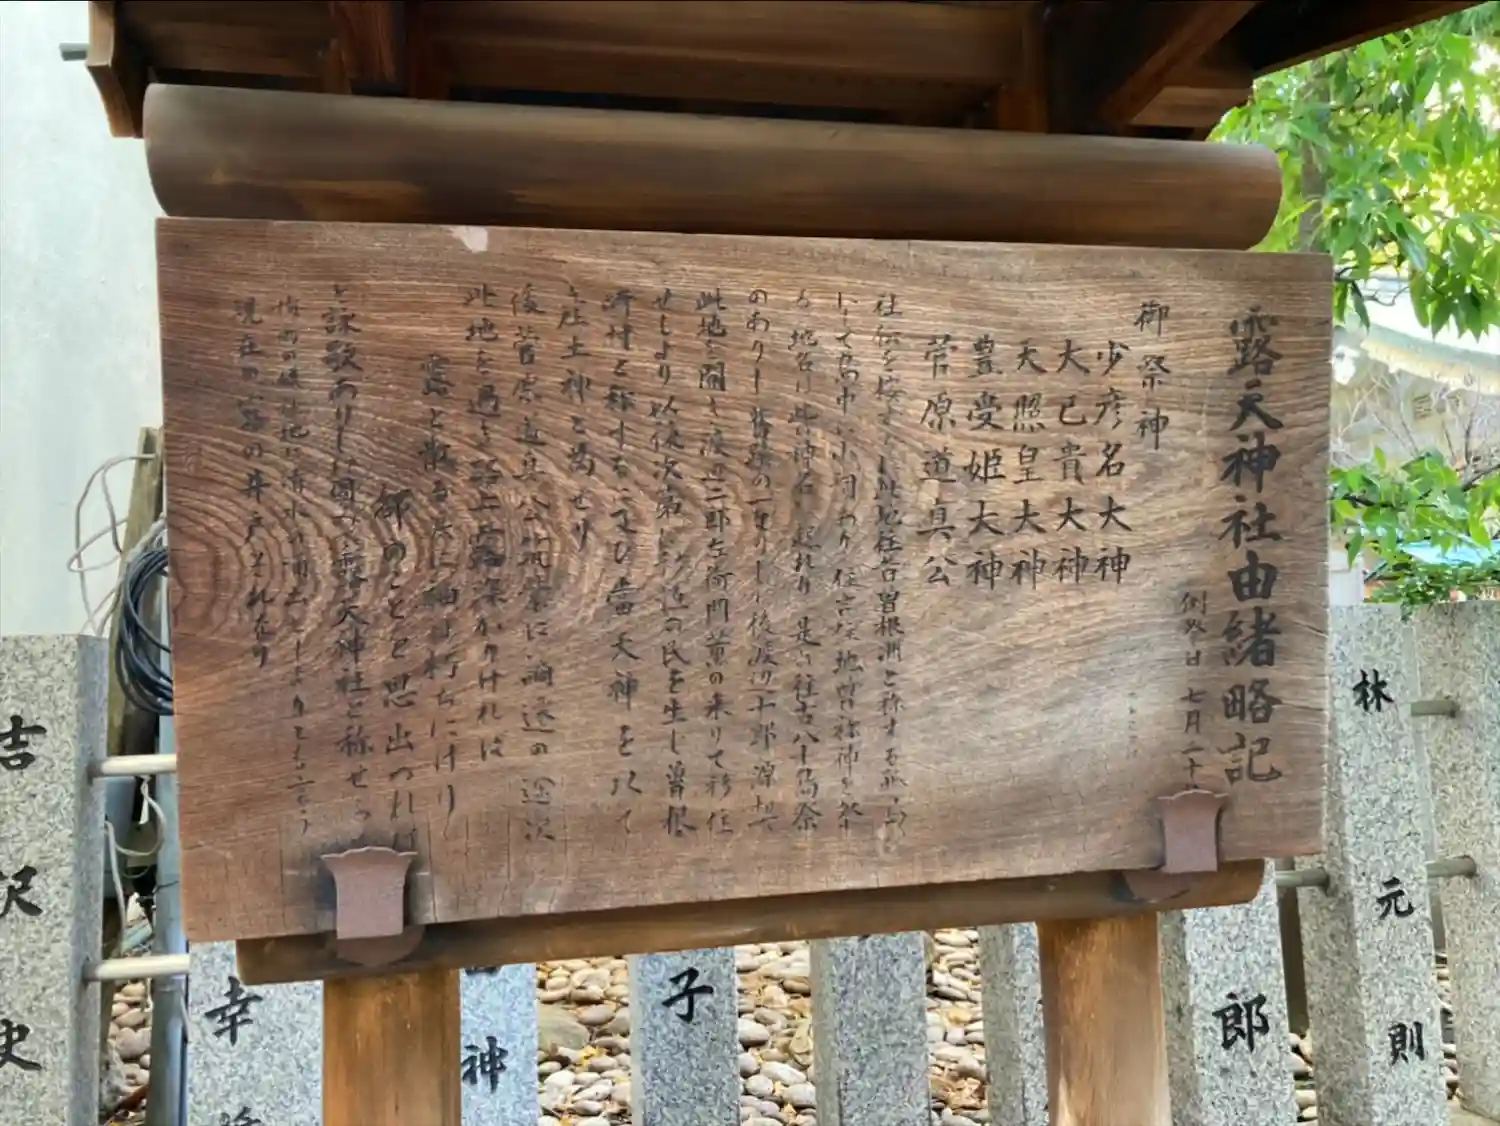 露天神社由緒略記
例祭日 七月二十
御祭神
少彦名大神
大己貴大神
天照皇大神
豊受姫大神
菅原道真公
社伝を按ずるに此地往昔曽根洲と称する孤島
にして
る地名は此神名に起れり是は往古八十島祭
のありし旧蹟の一なりし後渡辺十郎源
此地を開き渡辺二郎左衛門薫の来りて移住
せしより以後次第に附近の民を生し曽根
崎村と称するに及び当天神を以て
産土神と為せり
後菅原道真公筑紫に謫遷の途次
此地を過ぎ路上露深かりければ
露と散る涙に袖は朽ちにけり
都のことを思出つれば
と詠歌ありしに因つて露天神社と称せら
現在の露の井戸それなり
吉沢史
幸
神
子
郎
林元則